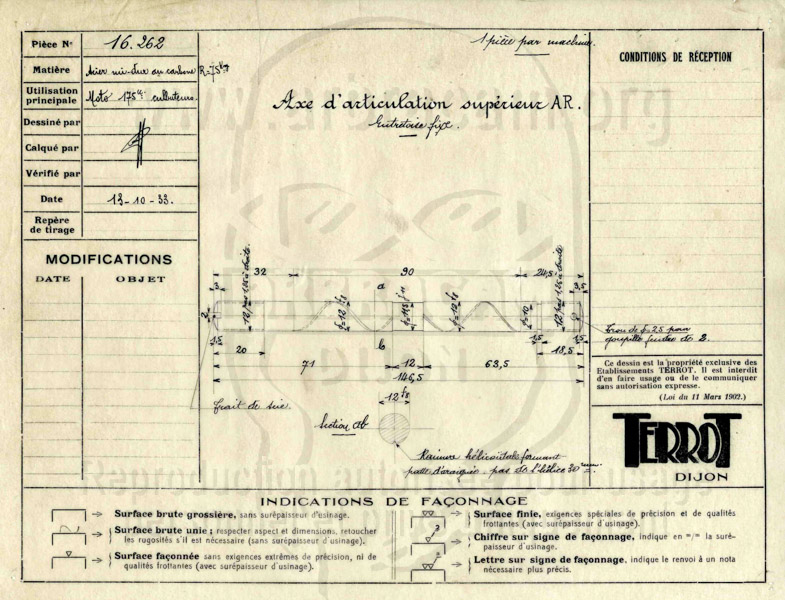 Pièce N° 16.262
Matière Acier mi-dur au carbone R=75kg
Utilisation principale Moto 175cc culbuteurs.
Dessiné par
Calqué par
Vérifié par
Date 13-10-33.
Repère de tirage
MODIFICATIONS
DATE OBJET
1 pièce par machine.
Axe d'articulation supérieur AR.
Entretoise fixe.
CONDITIONS DE RÉCEPTION
32 90 24,5
3 12 pas 1,5 à droite 12 pas 1,5 à droite
a
2
b
1,5 1,5 1,5
20 18,5
71 12 63,5
146,5
12 f8
Trait de scie
Trou de φ 2,5 pour
goupille fendue de 2.
Section ab
Rainure hélicoïdale formant
patte d'araignée - pas
Ce dessin est la propriété exclusive des
Etablissements TERROT. Il est interdit
d'en faire usage ou de le communiquer
sans autorisation expresse.
(Loi du 11 Mars 1902.)
TERROT
DIJON
INDICATIONS DE FAÇONNAGE
Surface brute grossière, sans surépaisseur d'usinage.
Surface brute unie ; respecter aspect et dimensions, retoucher
les rugosités s'il est nécessaire (sans surépaisseur d'usinage).
Surface façonnée sans exigences extrêmes de précision, ni de
qualités frottantes (avec surépaisseur d'usinage).
Surface finie, exigences spéciales de précision et de qualités
frottantes (avec surépaisseur d'usinage).
Chiffre sur signe de façonnage, indique en m/m la surépaisseur
d'usinage.
Lettre sur signe de façonnage, indique le renvoi à un nota
nécessaire plus précis.